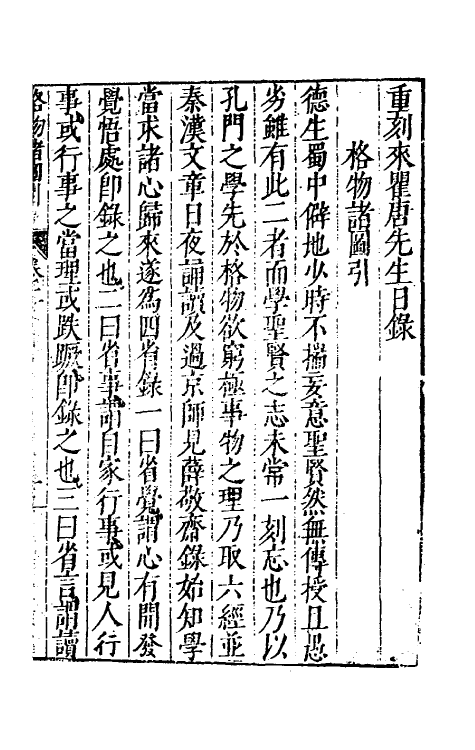 重刻來瞿唐先生日錄
格物諸圖引
德生蜀中僻地少時不揣妄意聖賢然無傳授且愚
劣雖有此二者而學聖賢之志未常一刻忘也乃以
孔門之學先於格物欲窮極事物之理乃取六經並
秦漢文章日夜誦讀及過京師見薛敬齋錄始知學
當求諸心歸來遂爲四省錄一曰省覺謂心有開發
覺悟處卽錄之也二曰省事謂自家行事或見人行
事或行事之當理或跌蹶卽錄之也三曰省言謂讀
格物諸圖引